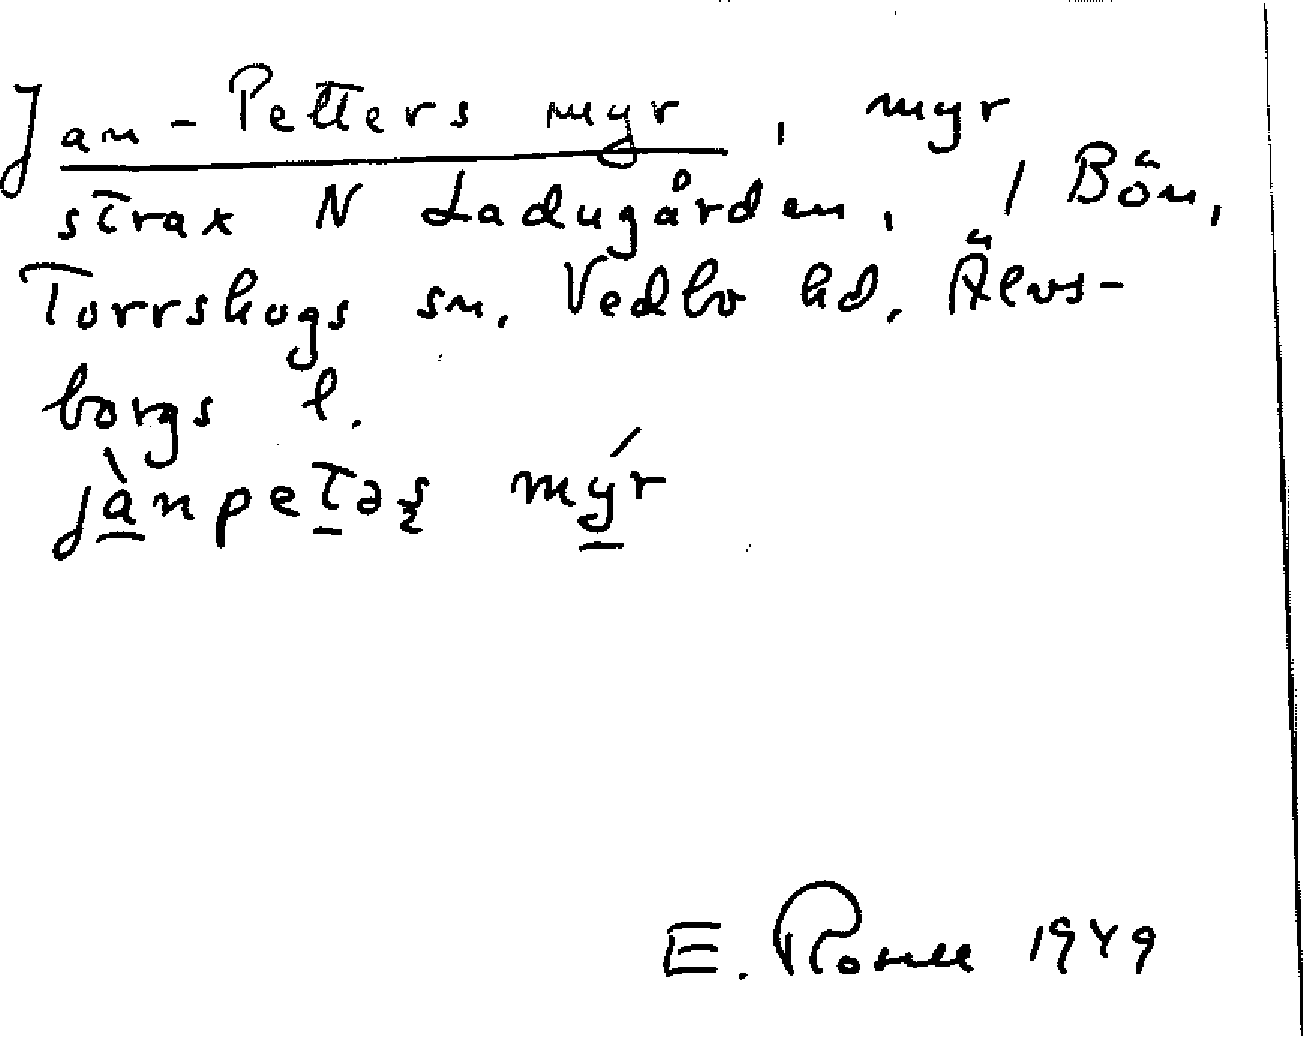 Jan-Petters myr, myr
strax N Ladugården, / Bön,
Torrskogs sn. Vedbo hd. Älvs-
borgs l.
jànpetəş mýr
E. Rosell 1949